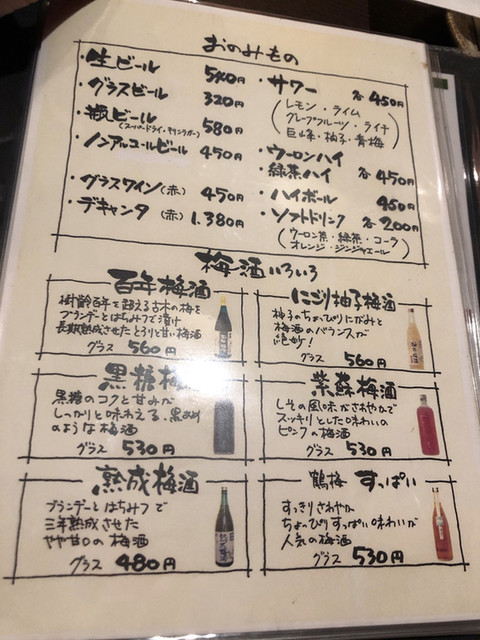 おのみもの
・生ビール 540円
・グラスビール 320円
・瓶ビール 580円
(スーパードライ・キリンラガー)
・ノンアルコールビール 450円
・グラスワイン(赤) 450円
・デキャンタ(赤) 1.380円
・サワー 各450円
(レモン・ライム
グレープフルーツ・ライチ
巨峰・柚子・青梅)
・ウーロンハイ
・緑茶ハイ 各450円
・ハイボール 450円
・ソフトドリンク 各200円
(ウーロン茶・緑茶・コーラ
オレンジ・ジンジャエール)
梅酒いろいろ
百年梅酒
樹齢百年を超える古木の梅を
ブランデーとはちみつで漬け
長期熟成させたとろりと甘い梅酒
グラス 560円
にごり柚子梅酒
柚子のちょっぴりにがみと
梅酒のバランスが
絶妙!
グラス 560円
黒糖梅
黒糖のコクと甘みが
しっかりと味わえる、黒あめ
のような梅酒
グラス 530円
紫蘇梅酒
しその風味がさわやかで
スッキリとした味わいの
ピンクの梅酒
グラス 530円
熟成梅酒
ブランデーとはちみつで
三年熟成させた
やや甘口の梅酒
グラス 480円
鶴梅 すっぱい
すっきりさわやか
ちょっぴりすっぱい味わいが
人気の梅酒
グラス 530円